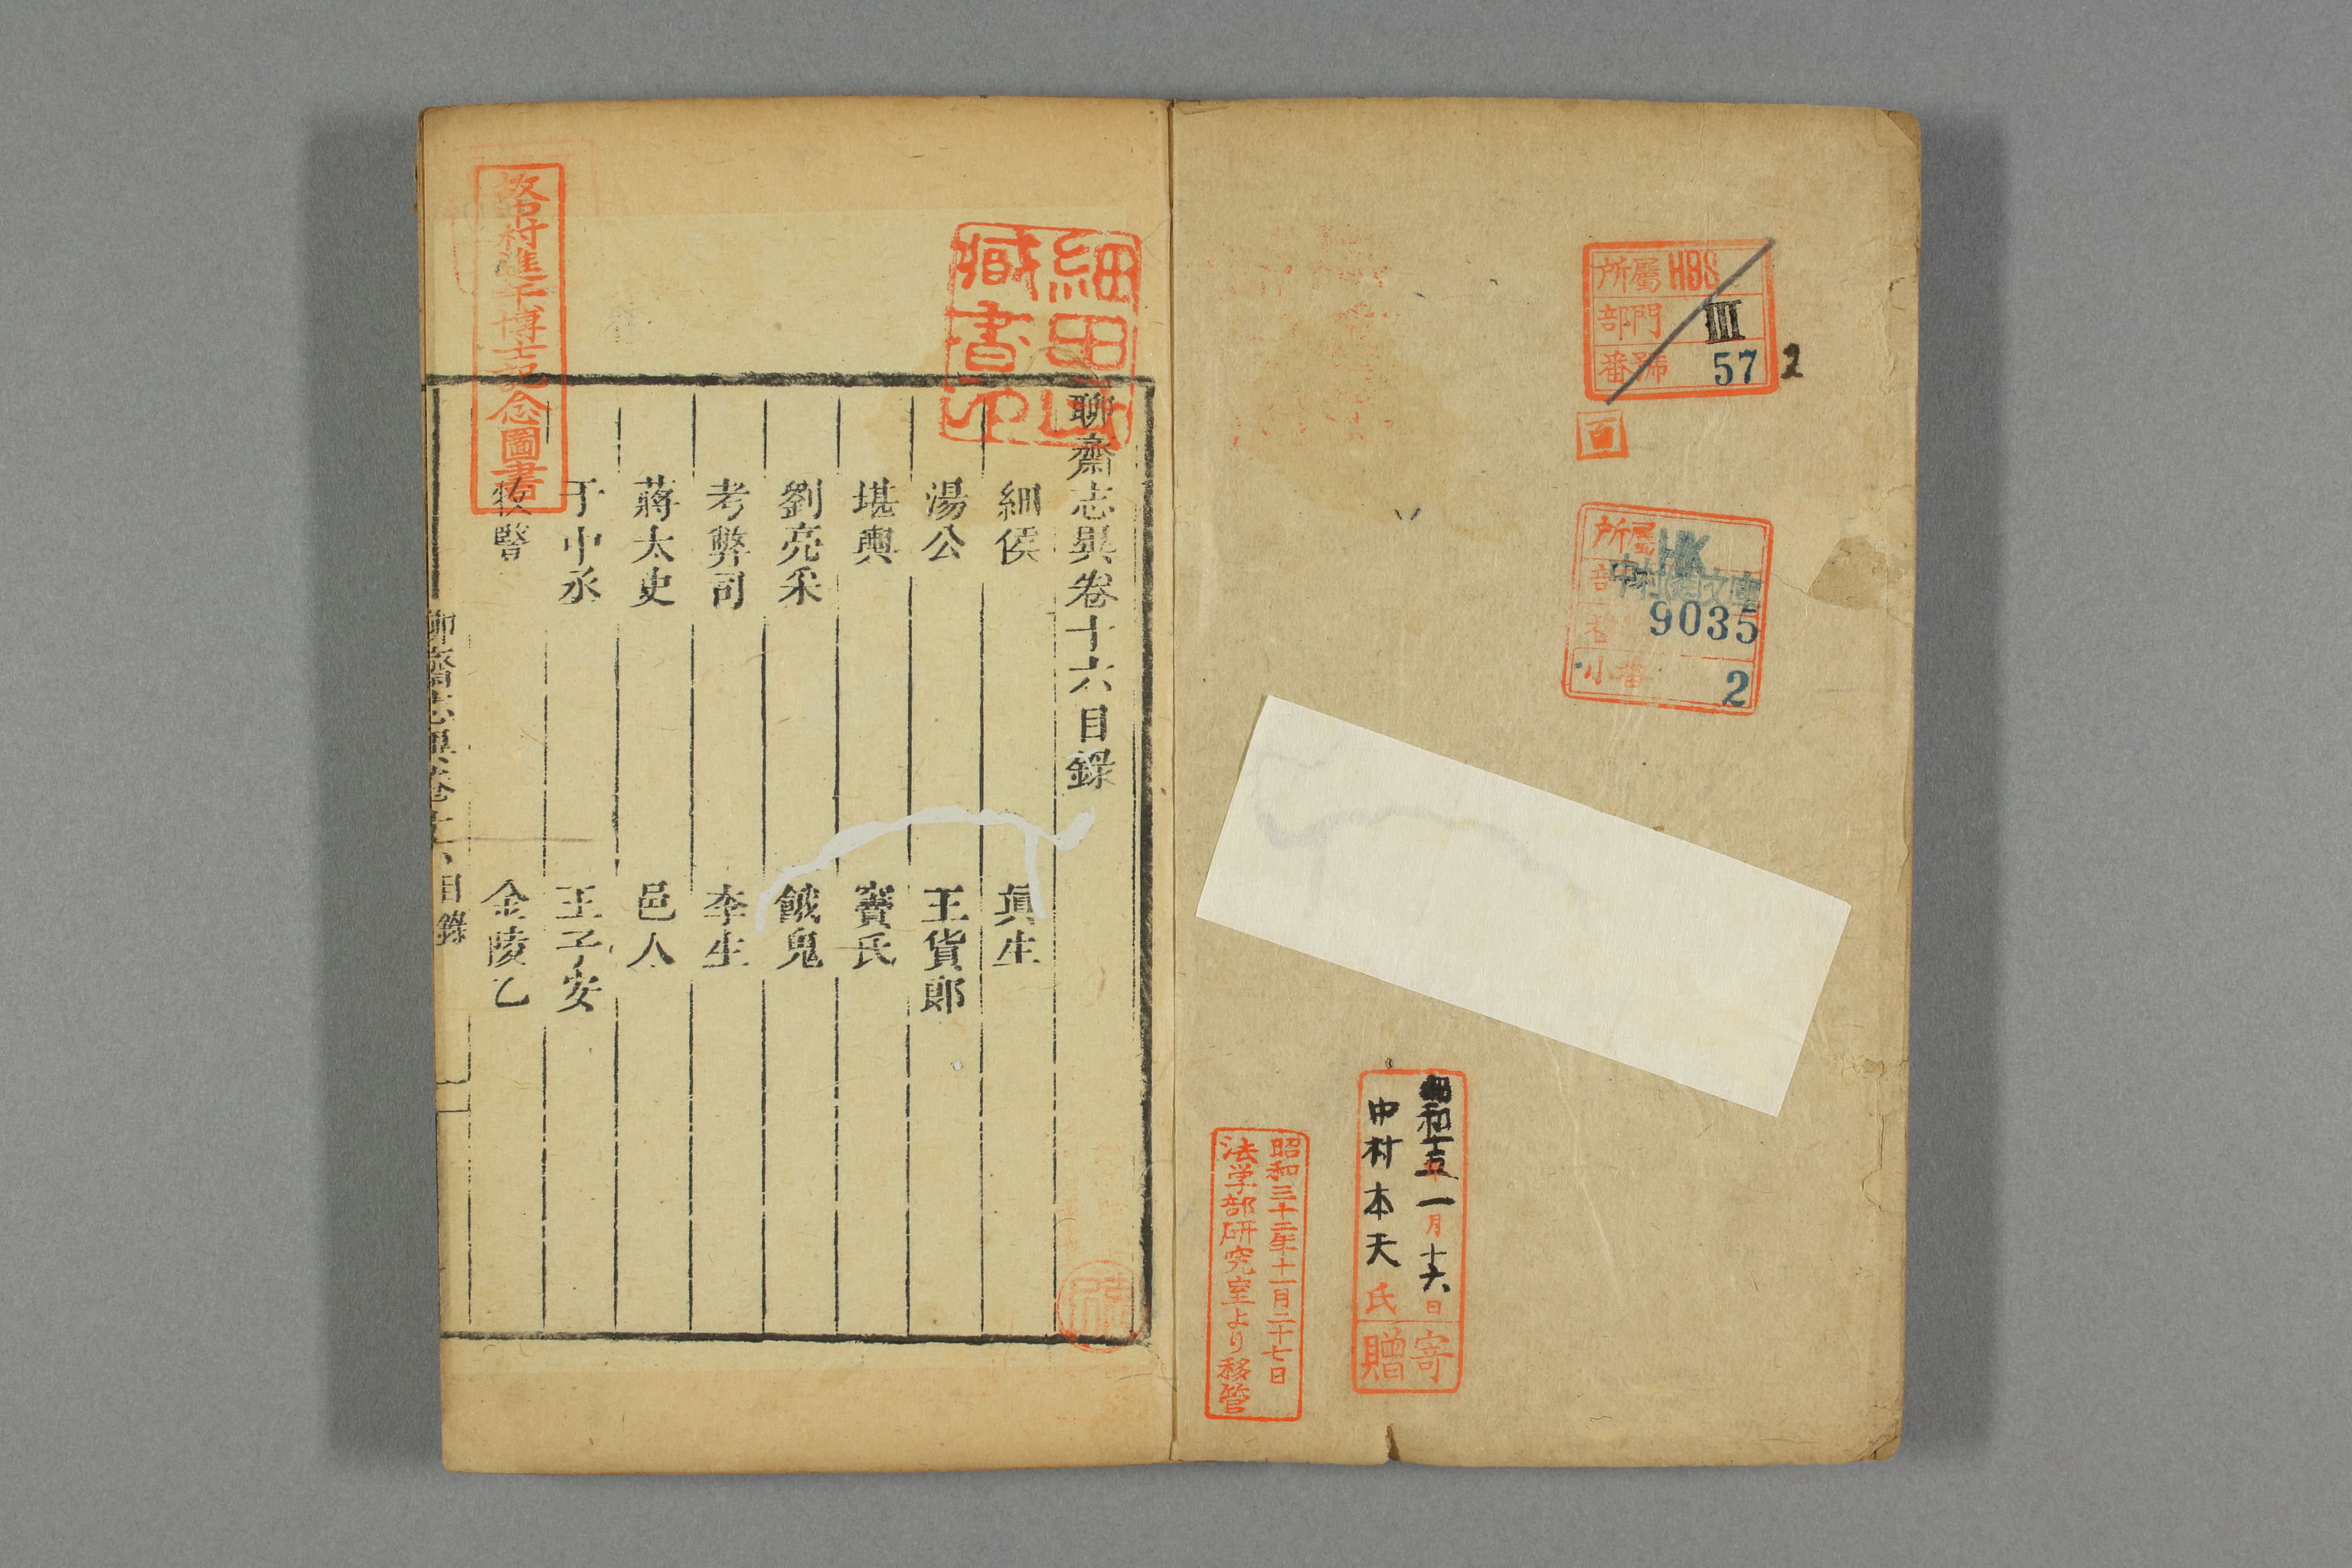 所屬 HBS
部門 III
番號 57 2
百
所屬 HK
中村進文庫
9035
小番 2
昭和十五年一月十六日
中村本天氏
寄贈
昭和三十二年十一月二十七日
法学部研究室より移管
細田氏
藏書印
故中村進午博士記念圖書
聊齋志異卷十六目錄
細侯 真生
湯公 王貨郎
堪輿 竇氏
劉亮采 餓鬼
考弊司 李生
蔣太史 邑人
于中丞 王子安
牧豎 金陵乙
聊齋志異卷十六目錄